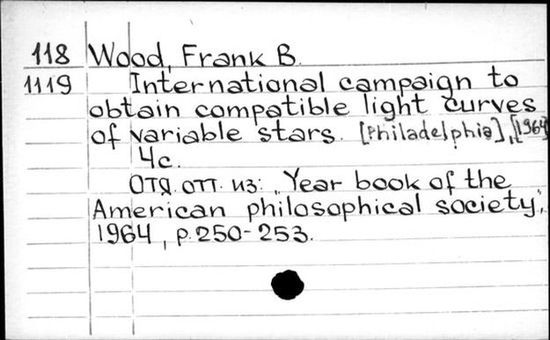 118 Wood, Frank B.
1119 International campaign to
obtain compatible light curves
of variable stars. [Philadelphia], [1964
4c.
Отд. отт. из: „Year book of the
American philosophical society",
1964, p. 250-253.